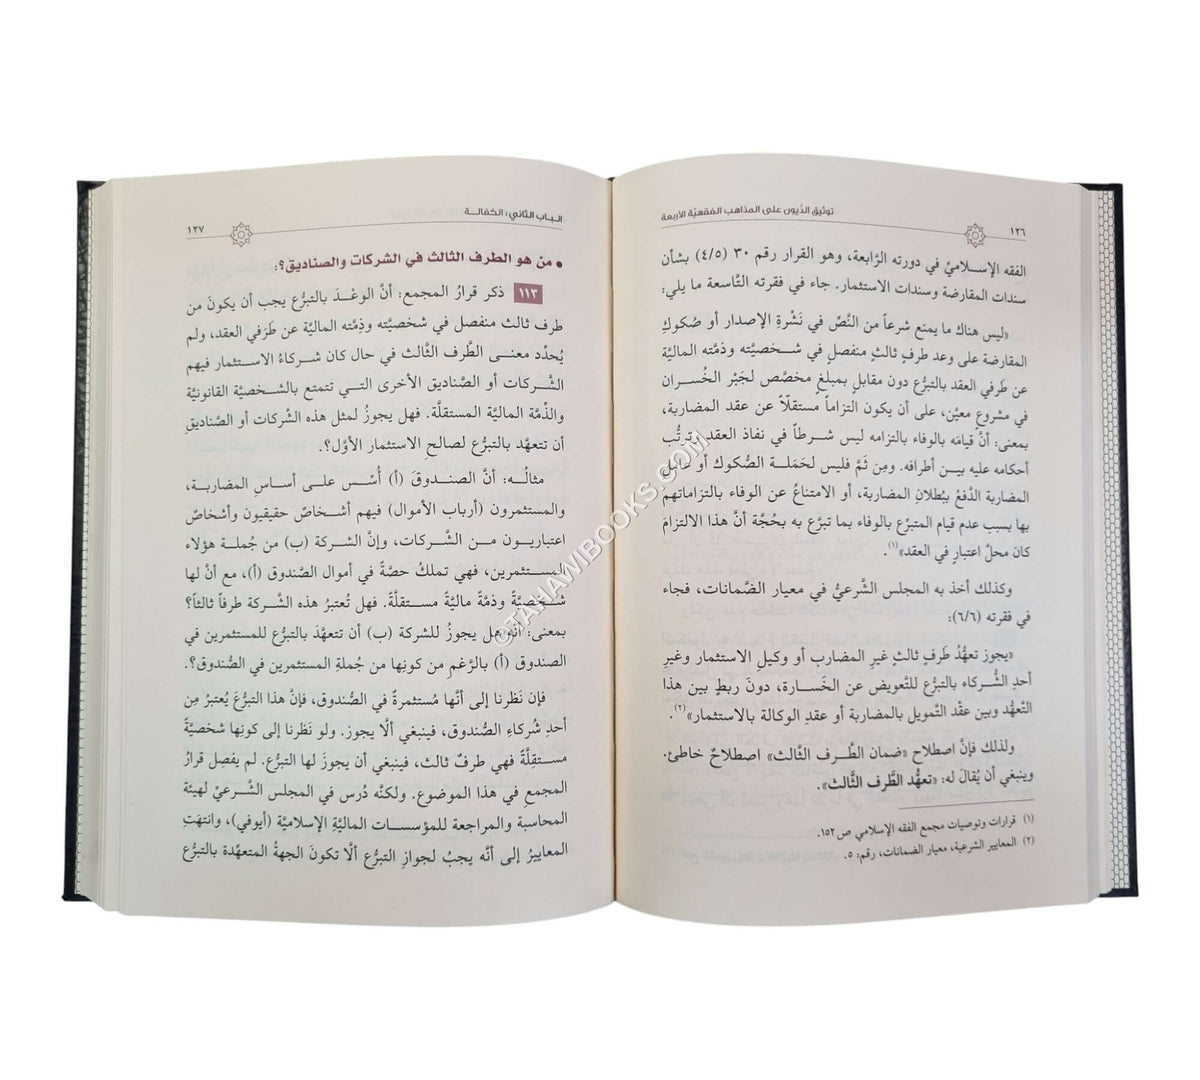 توثيق الدُّيون على المذاهب الفقهيَّة الأربعة
١٢٦
الفقه الإســلاميّ في دورته الرَّابعة، وهو القرار رقم ٣٠ (٤/٥) بشأن
سندات المقارضة وسندات الاستثمار. جاء في فقرته التَّاسعة ما يلي:
«ليس هناك ما يمنع شرعاً من النَّصِّ في نَشْرةِ الإصدار أو صُكوكِ
المقارضة على وعد طرفٍ ثالثٍ منفصل في شخصيَّته وذمَّته الماليَّة
عن طرَفي العقد بالتبرُّع دون مقابلٍ بمبلغٍ مخصَّص لجَبْر الخُسران
في مشروعٍ معيَّن، على أن يكون التزاماً مستقلّاً عن عقد المضاربة،
بمعنى: أنَّ قيامَه بالوفاء بالتزامه ليس شرطاً في نفاذ العقد وترتُّب
أحكامه عليه بيـن أطرافه. ومِن ثَمَّ فليس لحَمَلـة الصُّكوك أو عامل
المضاربة الدَّفعُ ببُطلانِ المضاربة، أو الامتناعُ عن الوفاء بالتزاماتهم
بها بسبب عدم قيام المتبرِّع بالوفاء بما تبرَّع به بحُجَّة أنَّ هذا الالتزامَ
كان محلَّ اعتبارٍ في العقد»(١).
وكذلك أخذ به المجلس الشَّرعيُّ في معيار الضَّمانات، فجاء
في فقرته (٦/٦):
«يجوز تعهُّدُ طَرفٍ ثالثٍ غيرِ المضارب أو وكيلِ الاستثمار وغيرِ
أحدِ الشُّركاء بالتبرُّع للتَّعويض عن الخَسارة، دونَ ربطٍ بين هذا
التَّعهُّد وبين عقْد التَّمويل بالمضاربة أو عقدِ الوكالة بالاستثمار»(٢).
ولذلك فإنَّ اصطلاح «ضمان الطَّرف الثَّالث» اصطلاحٌ خاطئ.
وينبغي أن يُقالَ له: «تعهُّد الطَّرف الثَّالث».
(١) قرارات وتوصيات مجمع الفقه الإسلامي ص ١٥٢.
(٢) المعايير الشرعية، معيار الضمانات، رقم: ٥.
الباب الثاني: الكفالـة
١٢٧
• من هو الطرف الثالث في الشركات والصناديق؟:
١١٣ ذكر قرارُ المجمع: أنَّ الوعْدَ بالتبرُّع يجب أن يكونَ من
طرف ثالث منفصل في شخصيَّته وذِمَّته الماليَّة عن طرَفي العقد، ولم
يُحدِّد معنـى الطَّرف الثَّالث في حال كان شـركاءُ الاستثمار فيهم
الشَّـركات أو الصَّناديق الأخرى التـي تتمتع بالشَّـخصيَّة القانونيَّة
والذِّمَّة الماليَّة المستقلَّة. فهل يجوزُ لمثل هذه الشَّركات أو الصَّناديقِ
أن تتعهَّد بالتبرُّع لصالح الاستثمار الأوَّل؟.
مثالُـه: أنَّ الصنـدوقَ (أ) أُسِّـس علـى أساسِ المضاربـة،
والمستثمرون (أرباب الأموال) فيهم أشـخاصٌ حقيقيون وأشخاصٌ
اعتباريـون مـن الشَّـركات، وإنَّ الشركة (ب) من جُملـة هؤلاء
المسـتثمرين، فهي تملكُ حصَّةً في أموال الصُّندوق (أ)، مع أنَّ لها
شـخصيَّةً وذمَّة ماليَّةً مستقلَّةً. فهل تُعتبرُ هذه الشَّركة طرفاً ثالثاً؟
بمعنى: أنَّه هل يجوزُ للشركة (ب) أن تتعهَّدَ بالتبرُّع للمستثمرين في
الصندوق (أ) بالرَّغمِ من كونِها من جُملةِ المستثمرين في الصُّندوق؟.
فإن نَظرنا إلى أنَّها مُستثمرةٌ في الصُّندوق، فإنَّ هذا التبرُّعَ يُعتبرُ مِن
أحدِ شُركاءِ الصُّندوق، فينبغي ألَّا يجوز. ولو نَظرنا إلى كونِها شخصيَّةً
مستقِلَّةً فهي طرفٌ ثالث، فينبغي أن يجوزَ لها التبرُّع. لم يفصِل قرارُ
المجمع في هذا الموضوع. ولكنَّه دُرس في المجلس الشَّرعيِّ لهيئة
المحاسبة والمراجعة للمؤسسات الماليَّةِ الإسلاميَّة (أيوفي)، وانتهَتِ
المعاييرُ إلى أنَّه يجبُ لجوازِ التبرُّعِ ألَّا تكونَ الجهةُ المتعهِّدة بالتبرُّع